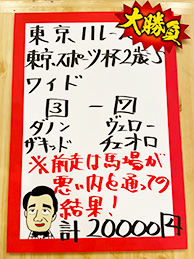 大勝負
東京11レース
東京スポーツ杯2歳S
ワイド
3－7
ダノン ヴェロー
ザキッド チェオロ
※前走は馬場が
悪い内を通っての
結果!
計20000円